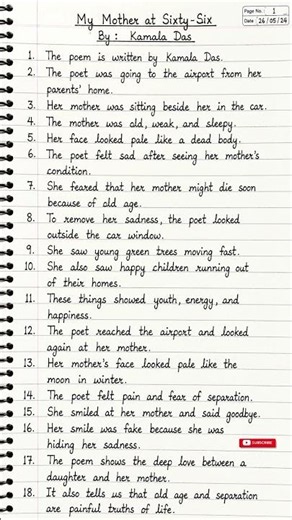 Page No.: 1
Date: 26/05/24
My Mother at Sixty-Six
By: Kamala Das
1. The poem is written by Kamala Das.
2. The poet was going to the airport from her
parents' home.
3. Her mother was sitting beside her in the car.
4. The mother was old, weak, and sleepy.
5. Her face looked pale like a dead body.
6. The poet felt sad after seeing her mother's
condition.
7. She feared that her mother might die soon
because of old age.
8. To remove her sadness, the poet looked
outside the car window.
9. She saw young green trees moving fast.
10. She also saw happy children running out
of their homes.
11. These things showed youth, energy, and
happiness.
12. The poet reached the airport and looked
again at her mother.
13. Her mother's face looked pale like the
moon in winter.
14. The poet felt pain and fear of separation.
15. She smiled at her mother and said goodbye.
16. Her smile was fake because she was
hiding her sadness.
SUBSCRIBE
17. The poem shows the deep love between a
daughter and her mother.
18. It also tells us that old age and separation
are painful truths of life.